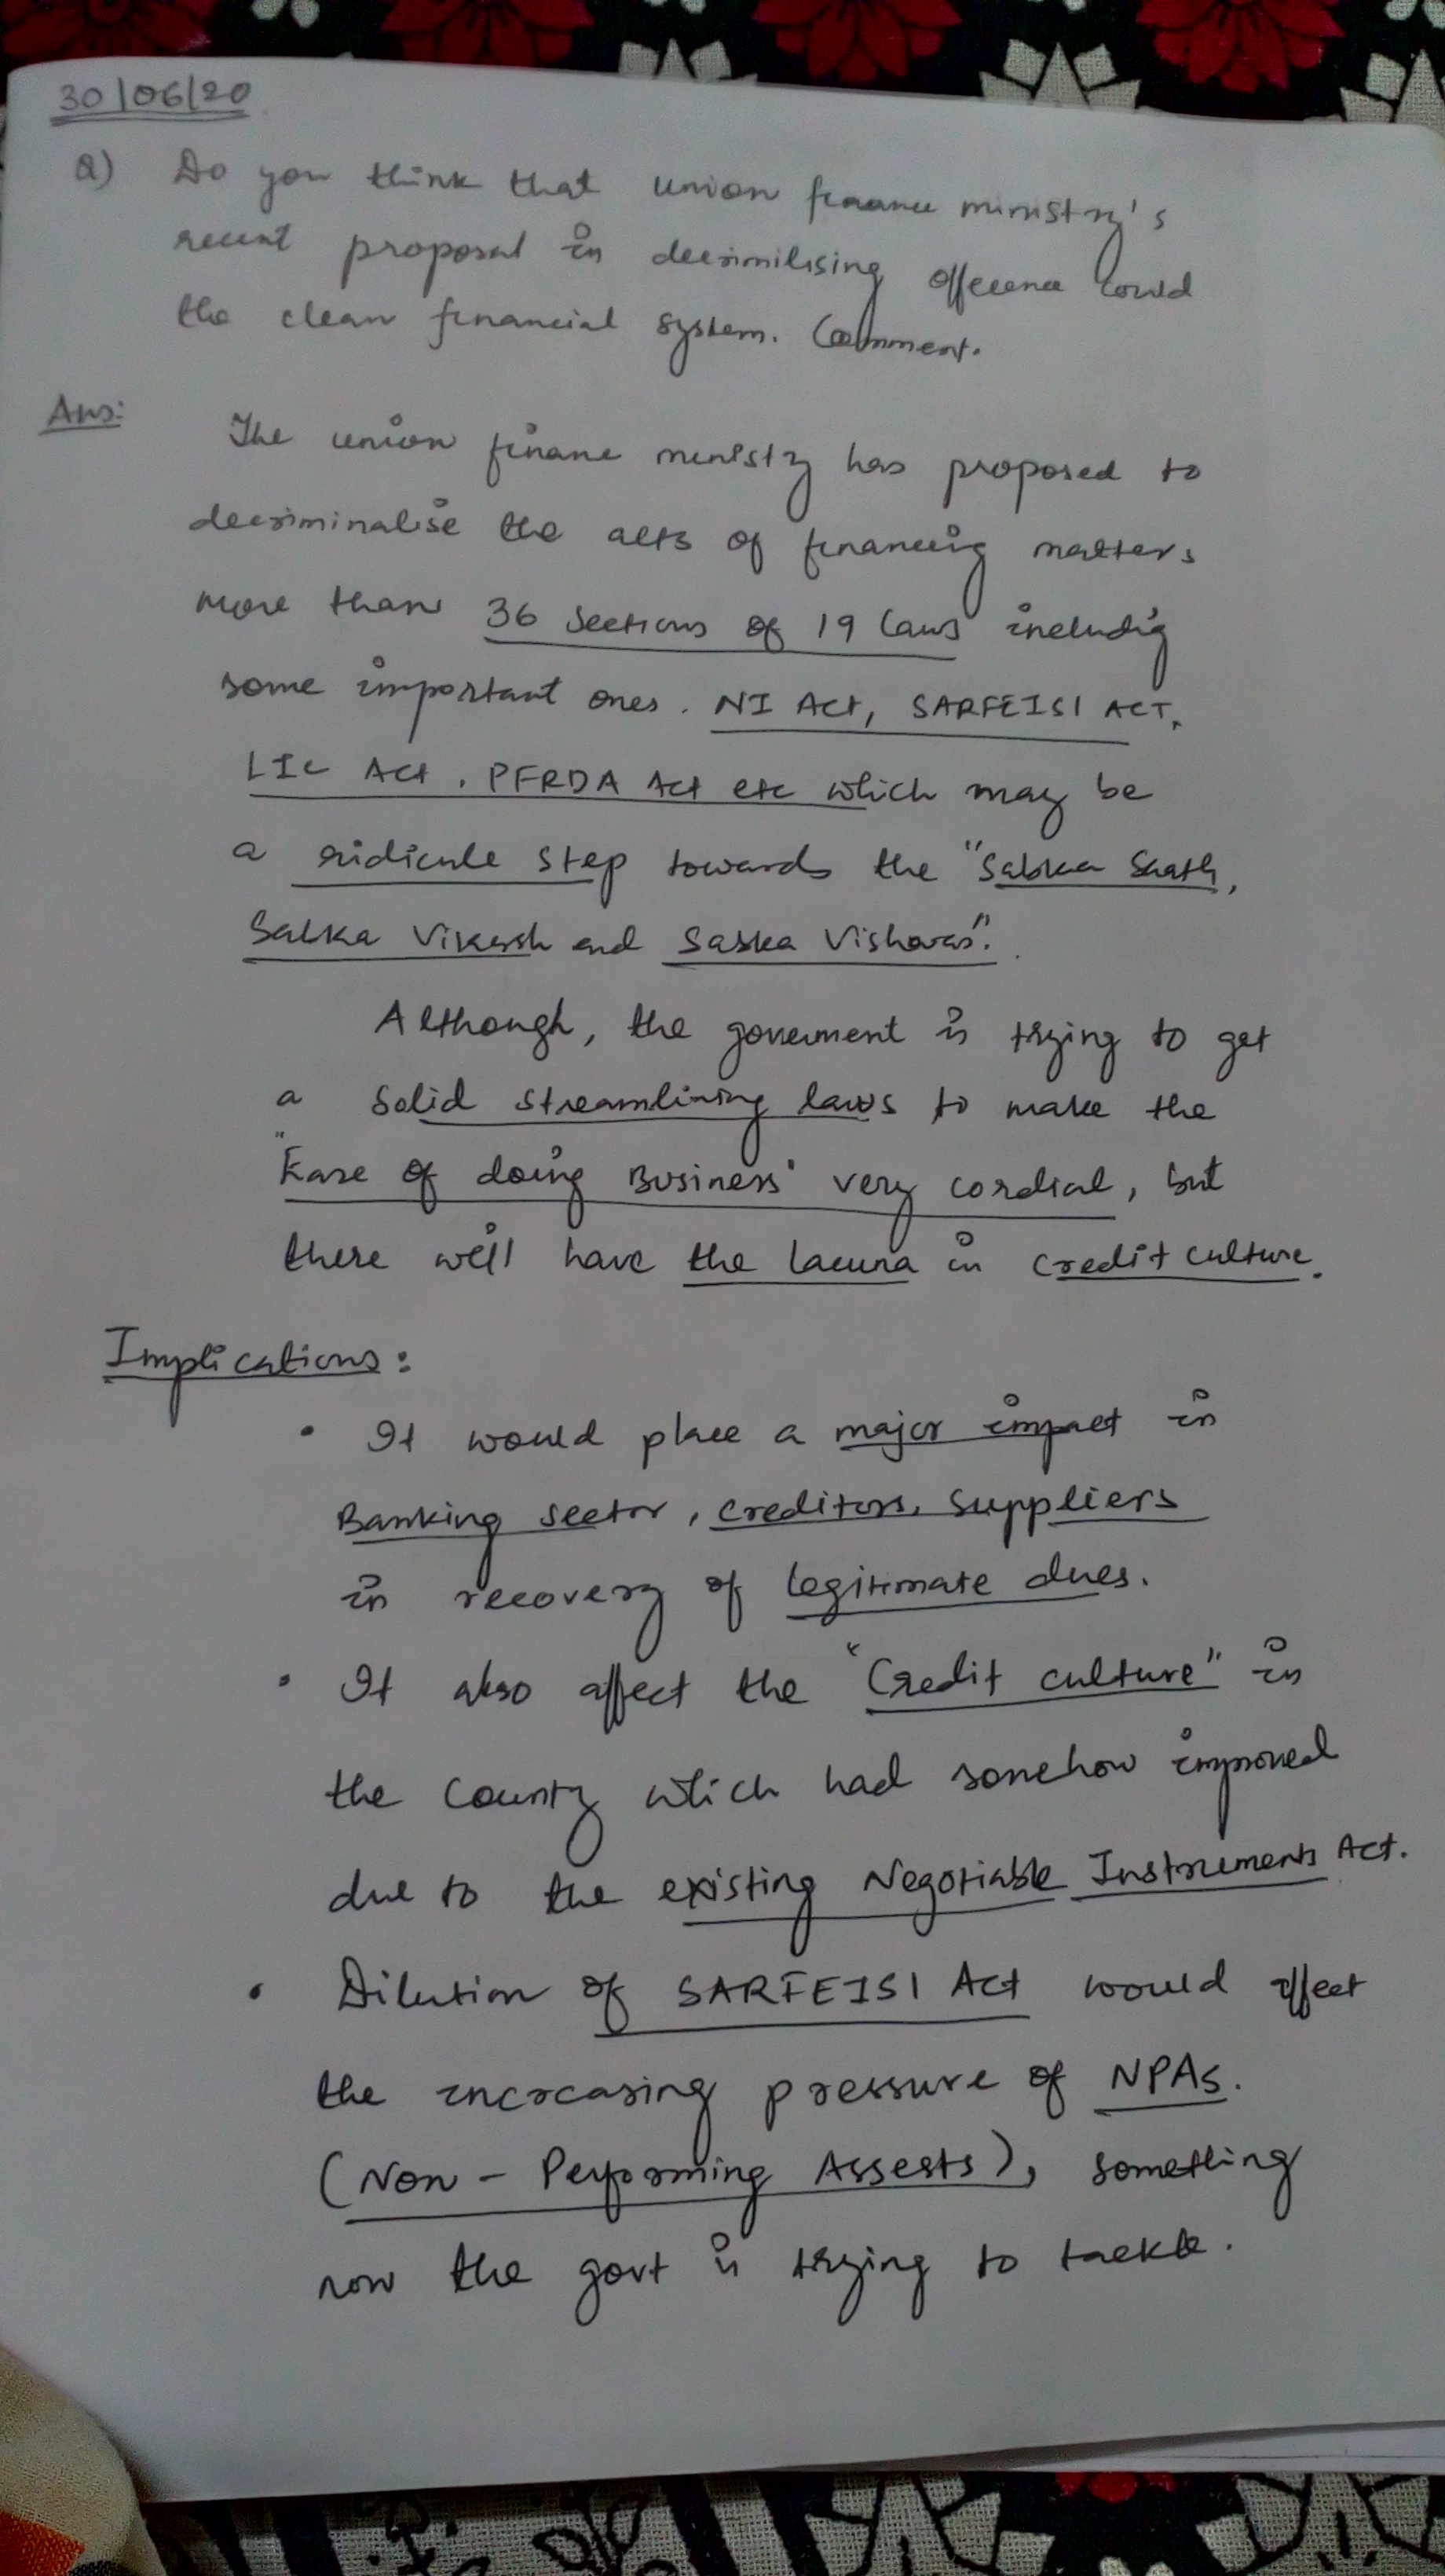 30/06/20
Q) Do you think that union finance ministry's
recent proposal in decriminilising offecence could
the clean financial system. Comment.
Ans: The union finane ministry has proposed to
decriminalise the acts of financing matters
more than 36 Sections of 19 laws includig
some important ones. NI Act, SARFEISI ACT,
LIC Act, PFRDA Act etc which may be
a ridicule step towards the "Sabka Saath,
Sabka Vikash and Sabka Vishwas".
Although, the goverment is trying to get
a solid streamlining laws to make the
"Ease of doing Business" very cordial, but
there will have the lacuna in credit culture.
Implications:
• It would place a major impact in
Banking sector, creditors, suppliers
in recovery of legitimate dues.
• It also affect the "Credit culture" in
the county which had somehow improved
due to the existing Negotiable Instruments Act.
• Dilution of SARFEISI Act would effect
the increasing pressure of NPAs.
(Non - Performing Assests), something
now the govt is trying to tackle.